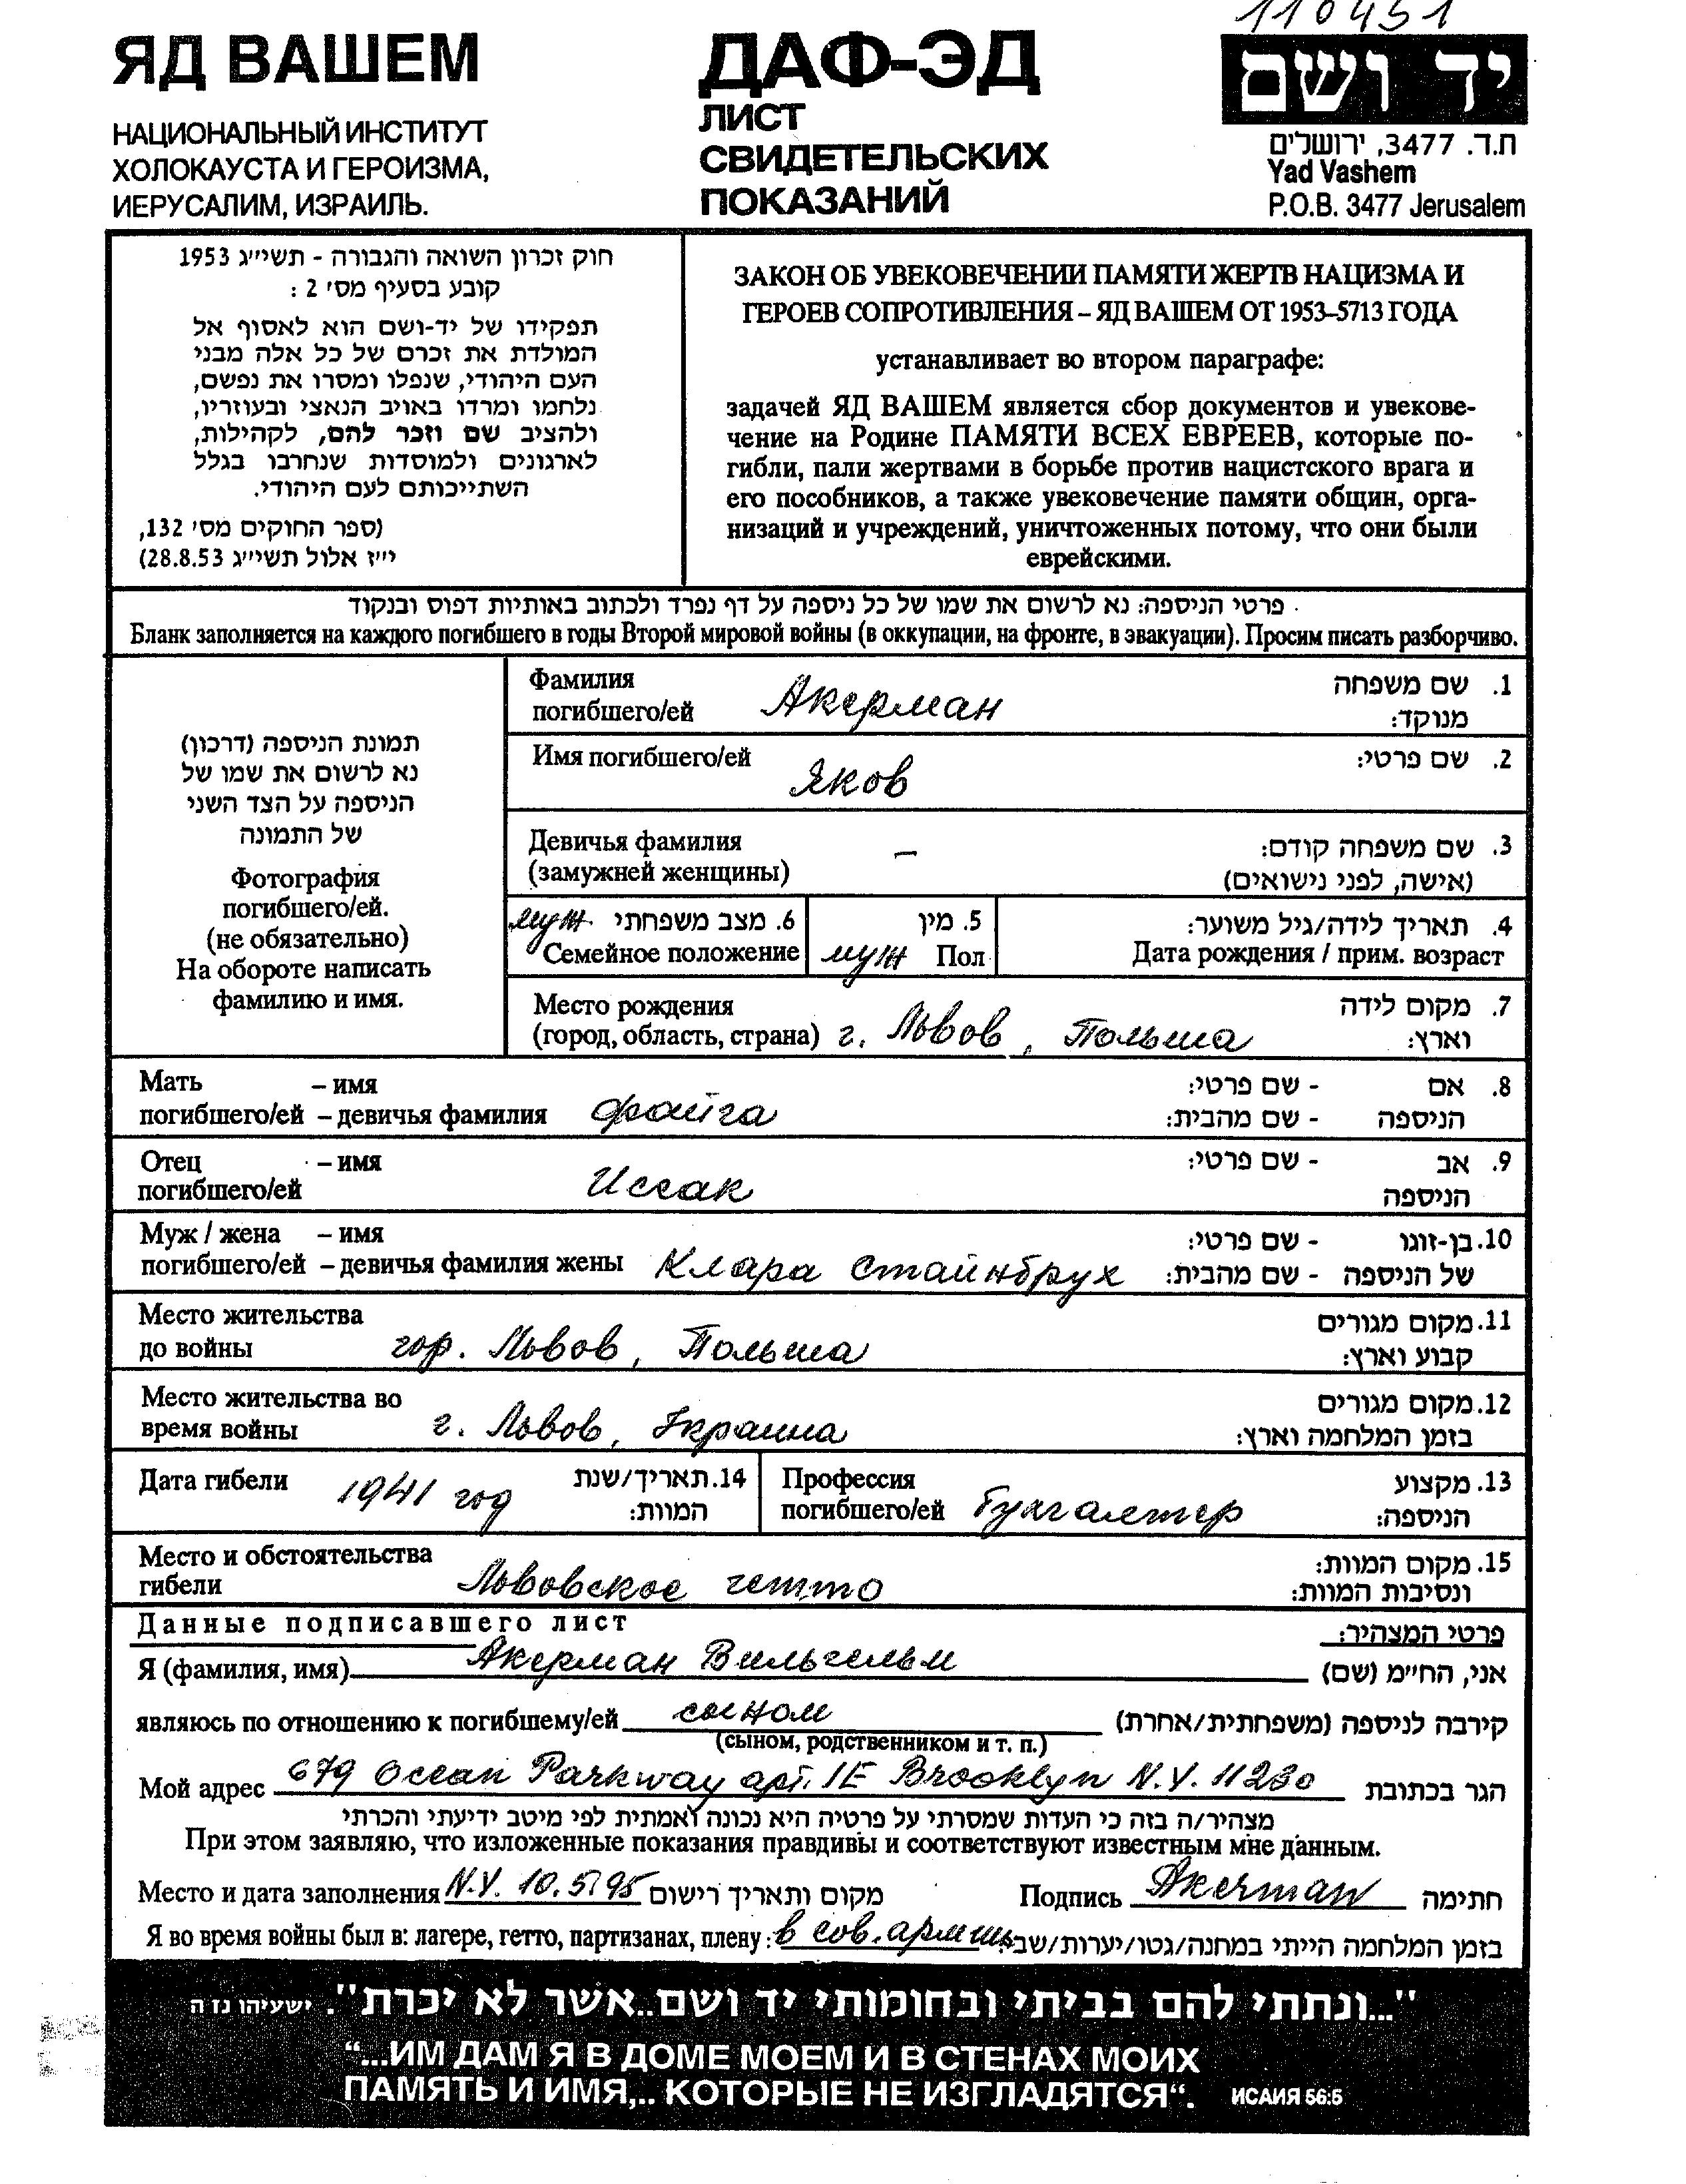 110451
ЯД ВАШЕМ
НАЦИОНАЛЬНЫЙ ИНСТИТУТ
ХОЛОКАУСТА И ГЕРОИЗМА,
ИЕРУСАЛИМ, ИЗРАИЛЬ.
ДАФ-ЭД
ЛИСТ
СВИДЕТЕЛЬСКИХ
ПОКАЗАНИЙ
יד ושם
ת.ד. 3477, ירושלים
Yad Vashem
P.O.B. 3477 Jerusalem
חוק זכרון השואה והגבורה - תשי״ג 1953
קובע בסעיף מס׳ 2 :
תפקידו של יד-ושם הוא לאסוף אל
המולדת את זכרם של כל אלה מבני
העם היהודי, שנפלו ומסרו את נפשם,
נלחמו ומרדו באויב הנאצי ובעוזריו,
ולהציב שם וזכר להם, לקהילות,
לארגונים ולמוסדות שנחרבו בגלל
השתייכותם לעם היהודי.
(ספר החוקים מס׳ 132,
י״ז אלול תשי״ג 28.8.53)
ЗАКОН ОБ УВЕКОВЕЧЕНИИ ПАМЯТИ ЖЕРТВ НАЦИЗМА И
ГЕРОЕВ СОПРОТИВЛЕНИЯ – ЯД ВАШЕМ ОТ 1953–5713 ГОДА
устанавливает во втором параграфе:
задачей ЯД ВАШЕМ является сбор документов и увекове-
чение на Родине ПАМЯТИ ВСЕХ ЕВРЕЕВ, которые по-
гибли, пали жертвами в борьбе против нацистского врага и
его пособников, а также увековечение памяти общин, орга-
низаций и учреждений, уничтоженных потому, что они были
еврейскими.
פרטי הניספה: נא לרשום את שמו של כל ניספה על דף נפרד ולכתוב באותיות דפוס ובנקוד
Бланк заполняется на каждого погибшего в годы Второй мировой войны (в оккупации, на фронте, в эвакуации). Просим писать разборчиво.
תמונת הניספה (דרכון)
נא לרשום את שמו של
הניספה על הצד השני
של התמונה
Фотография
погибшего/ей.
(не обязательно)
На обороте написать
фамилию и имя.
Фамилия
погибшего/ей Акерман
1. שם משפחה
מנוקד:
Имя погибшего/ей Яков
2. שם פרטי:
Девичья фамилия –
(замужней женщины)
3. שם משפחה קודם:
(אישה, לפני נישואים)
муж 6. מצב משפחתי
Семейное положение
5. מין
муж Пол
4. תאריך לידה/גיל משוער:
Дата рождения / прим. возраст
Место рождения
(город, область, страна) г. Львов, Польша
7. מקום לידה
וארץ:
Мать – имя
погибшего/ей – девичья фамилия Файга
8. אם - שם פרטי:
הניספה - שם מהבית:
Отец – имя
погибшего/ей Иссак
9. אב - שם פרטי:
הניספה
Муж / жена – имя
погибшего/ей – девичья фамилия жены Клара Стайнбрух
10. בן-זוגו - שם פרטי:
של הניספה - שם מהבית:
Место жительства
до войны гор. Львов, Польша
11. מקום מגורים
קבוע וארץ:
Место жительства во
время войны г. Львов, Украина
12. מקום מגורים
בזמן המלחמה וארץ:
Дата гибели 1941 год
14. תאריך/שנת
המוות:
Профессия
погибшего/ей Бухгалтер
13. מקצוע
הניספה:
Место и обстоятельства
гибели Львовское гетто
15. מקום המוות:
ונסיבות המוות:
Данные подписавшего лист
פרטי המצהיר:
Я (фамилия, имя) Акерман Вильгельм אני, הח״מ (שם)
являюсь по отношению к погибшему/ей сыном קירבה לניספה (משפחתית/אחרת)
(сыном, родственником и т. п.)
Мой адрес 679 Ocean Parkway apt. 1E Brooklyn N.Y. 11230 הגר בכתובת
מצהיר/ה בזה כי העדות שמסרתי על פרטיה היא נכונה ואמתית לפי מיטב ידיעתי והכרתי
При этом заявляю, что изложенные показания правдивы и соответствуют известным мне данным.
Место и дата заполнения N.Y. 10.5.95 מקום ותאריך רישום Подпись Akerman חתימה
Я во время войны был в: лагере, гетто, партизанах, плену: в сов. армии בזמן המלחמה הייתי במחנה/גטו/יערות/שבי:
"...ונתתי להם בביתי ובחומותי יד ושם...אשר לא יכרת". ישעיהו נו ה
“...ИМ ДАМ Я В ДОМЕ МОЕМ И В СТЕНАХ МОИХ
ПАМЯТЬ И ИМЯ,.. КОТОРЫЕ НЕ ИЗГЛАДЯТСЯ“. ИСАИЯ 56:5